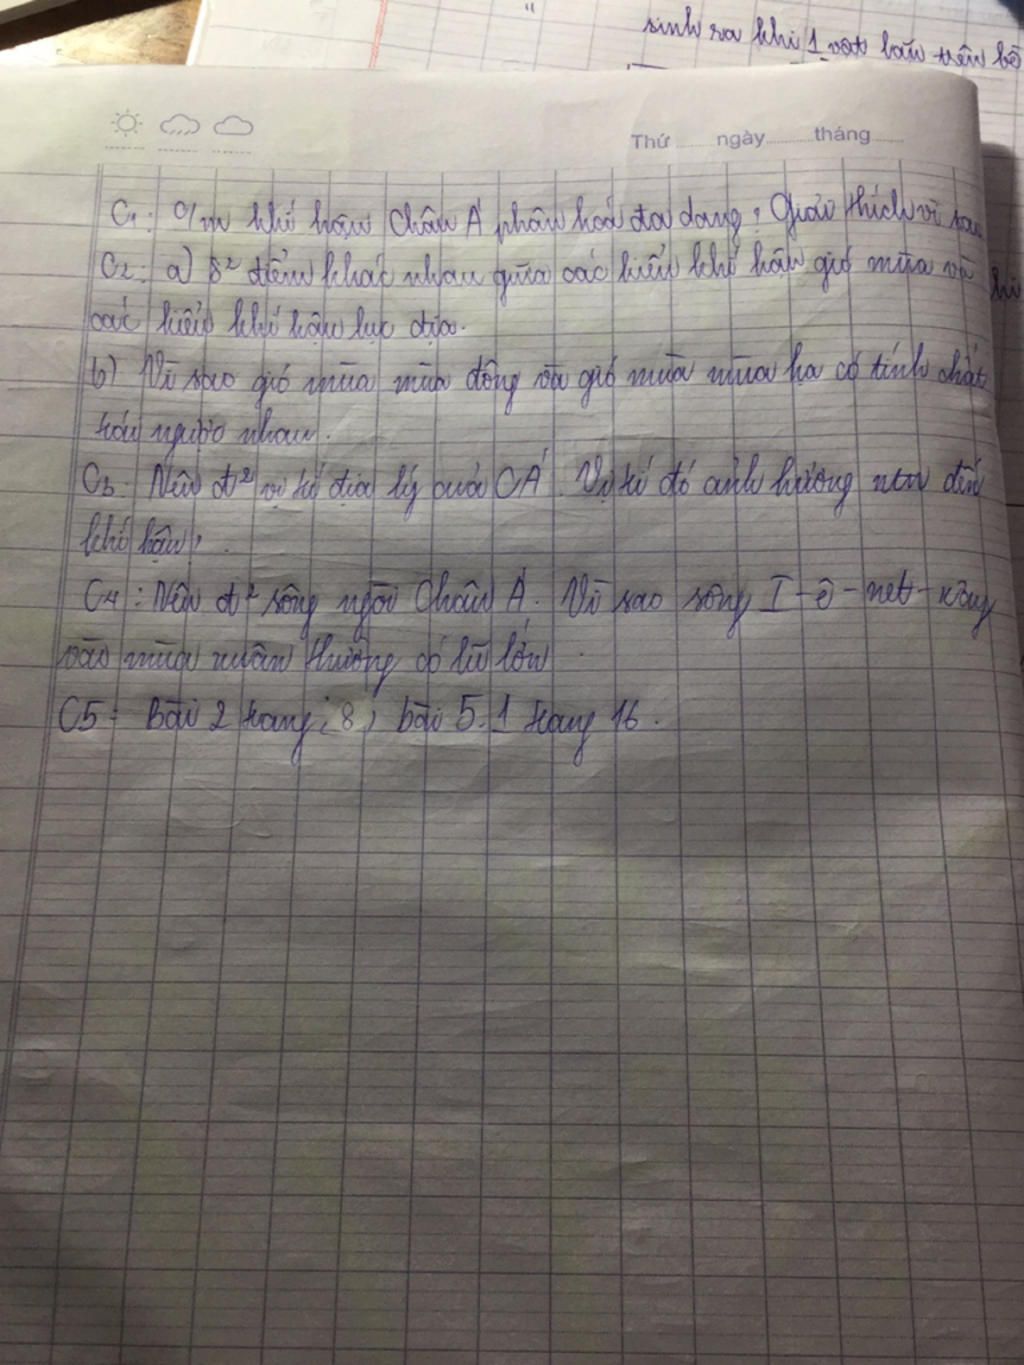 sinh ra khi 1 vật lăn trên bề
Thứ ngày tháng
C1: C/m khí hậu Châu Á phân hoá đa dạng? Giải thích vì sao
C2: a) δ² điểm khác nhau giữa các kiểu khí hậu gió mùa và
các kiểu khí hậu lục địa.
b) Vì sao gió mùa mùa đông và gió mùa mùa hạ có tính chất
trái ngược nhau.
C3: Nêu đ² vị trí địa lý của CÁ. Vị trí đó ảnh hưởng ntn đến
khí hậu?
C4: Nêu đ² sông ngòi Châu Á. Vì sao sông I-ê-net-xây
vào mùa xuân thường có lũ lớn
C5: Bài 2 trang 8, bài 5.1 trang 16.